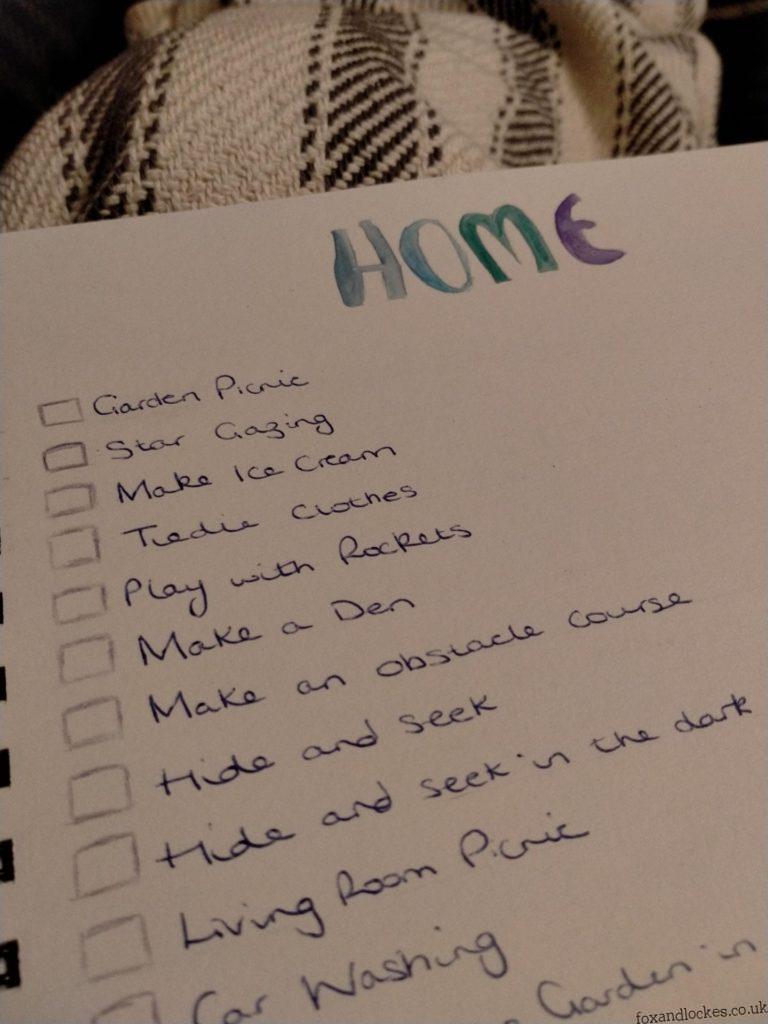 HOME
Garden Picnic
Star Gazing
Make Ice Cream
Tiedie Clothes
Play with Rockets
Make a Den
Make an obstacle course
Hide and seek
Hide and seek in the dark
Living Room Picnic
Car Washing
Garden in
foxandlockes.co.uk